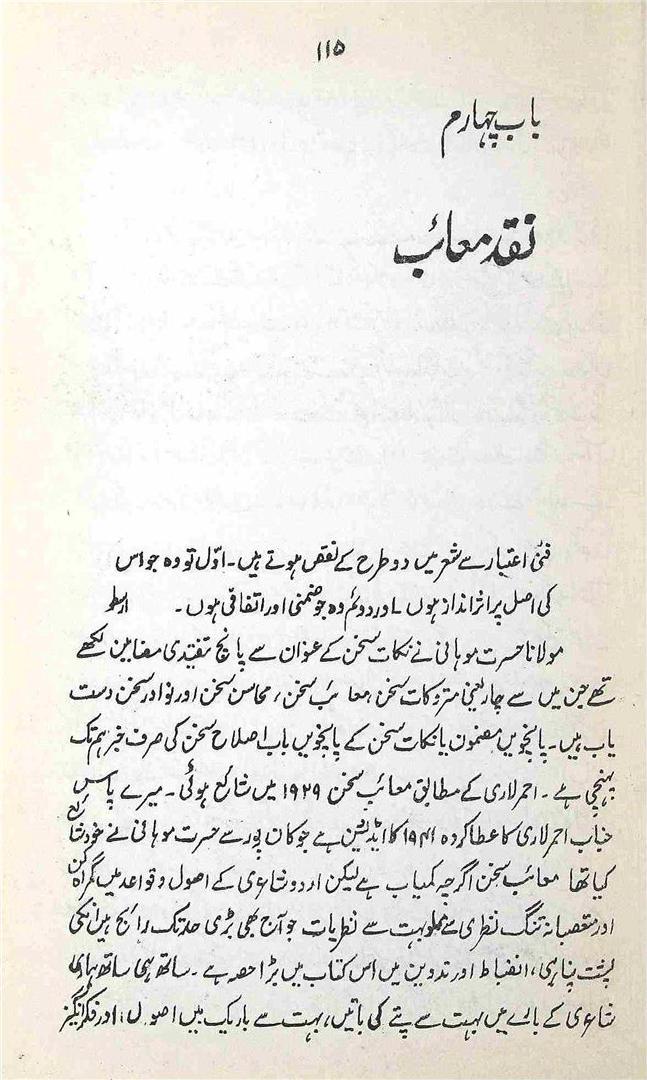 ۱۱۵
باب چہارم
نقد معائب
فنی اعتبار سے شعر میں دو طرح کے نقص ہوتے ہیں۔ اوّل تو وہ جو اس
کی اصل پر اثر انداز ہوں۔ اور دوئم وہ جو ضمنی اور اتفاقی ہوں۔ ارسطو
مولانا حسرت موہانی نے نکات سخن کے عنوان سے پانچ تنقیدی مضامین لکھے
تھے جن میں سے چار یعنی متروکات سخن، معائب سخن، محاسن سخن اور نوادر سخن دست
یاب ہیں۔ پانچویں مضمون یا نکات سخن کے پانچویں باب اصلاح سخن کی صرف خبر ہم تک
پہنچی ہے۔ احمر لاری کے مطابق معائب سخن ۱۹۲۹ میں شائع ہوئی۔ میرے پاس
جناب احمر لاری کا عطا کردہ ۱۹۴۱ کا ایڈیشن ہے جو کان پور سے حسرت موہانی نے خود شائع
کیا تھا معائب سخن اگرچہ کمیاب ہے لیکن اردو شاعری کے اصول و قواعد میں گمراہ کن
اور متعصبانہ تنگ نظری سے مملو بہت سے نظریات جو آج بھی بڑی حد تک رائج ہیں انکی
پشت پناہی، انضباط اور تدوین میں اس کتاب میں بڑا حصہ ہے۔ ساتھ ہی ساتھ ہماری
شاعری کے بارے میں بہت سے پتے کی باتیں، بہت سے باریک بیں اصول، اور فکر انگیز